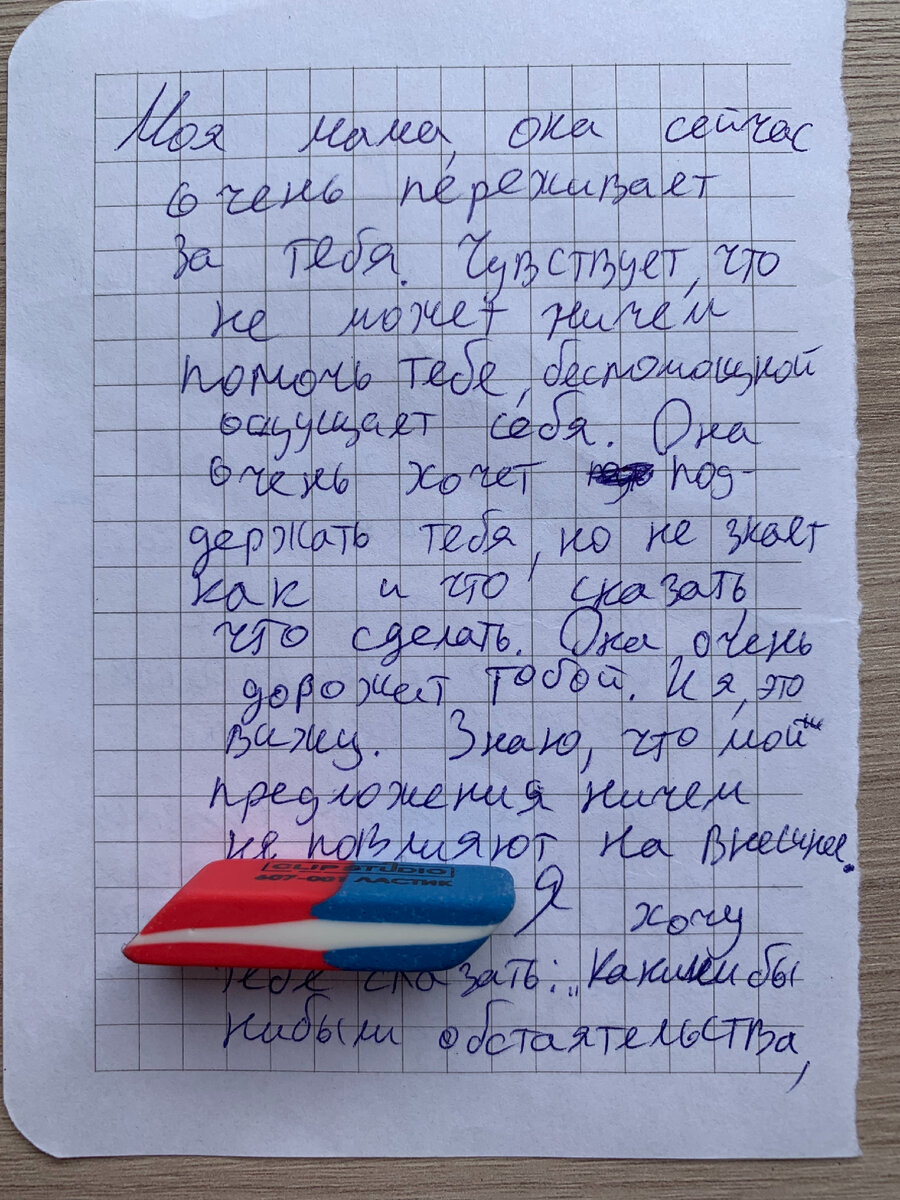 Моя мама, она сейчас
очень переживает
за тебя. Чувствует, что
не может ничем
помочь тебе, беспомощной
ощущает себя. Она
очень хочет под-
держать тебя, но не знает
как и что сказать,
что сделать. Она очень
дорожит тобой. И я, это
вижу. Знаю, что мои
предложения ничем
не повлияют на внешнее.
CLIP STUDIO
607-001 ЛАСТИК
Я хочу
тебе сказать: „Какими бы
нибыли обстаятельства,